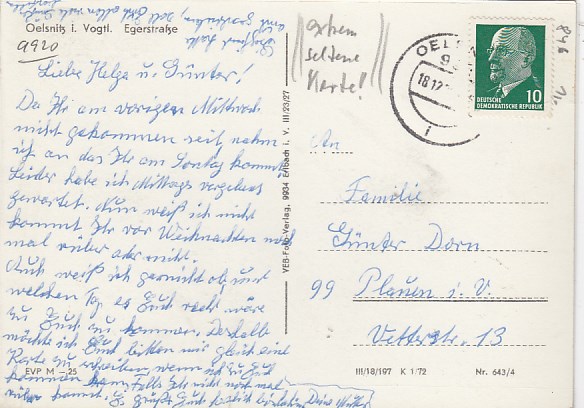 Oelsnitz i. Vogtl. Egerstraße
9920
Liebe Helga u. Günter!
Da Ihr am vorigen Mittwoch
nicht gekommen seit, nahm
ich an das Ihr am Sontag kommt
Leider habe ich Mittags vergebens
gewartet. Nun weiß ich nicht
kommt Ihr vor Weihnachten noch
mal rüber oder nicht.
Auch weiß ich garnicht ob und
welchen Tag es Euch recht wäre
zu Euch zu kommen. Deshalb
möchte ich Euch bitten mir gleich eine
Karte zu schreiben wenn ich zu Euch
kommen kann falls Ihr nicht noch mal
rüber kommt. Es grüßt Euch Deine Mutter
EVP M -,25
VEB-Foto-Verlag, 9934 Erlbach i. V. III/23/27
extrem
seltene
Karte!
OELSNITZ
18.12.
DEUTSCHE
DEMOKRATISCHE REPUBLIK
10
An
Familie
Günter Dorn
99 Plauen i. V.
Vetterstr. 13
III/18/197 K 1/72
Nr. 643/4